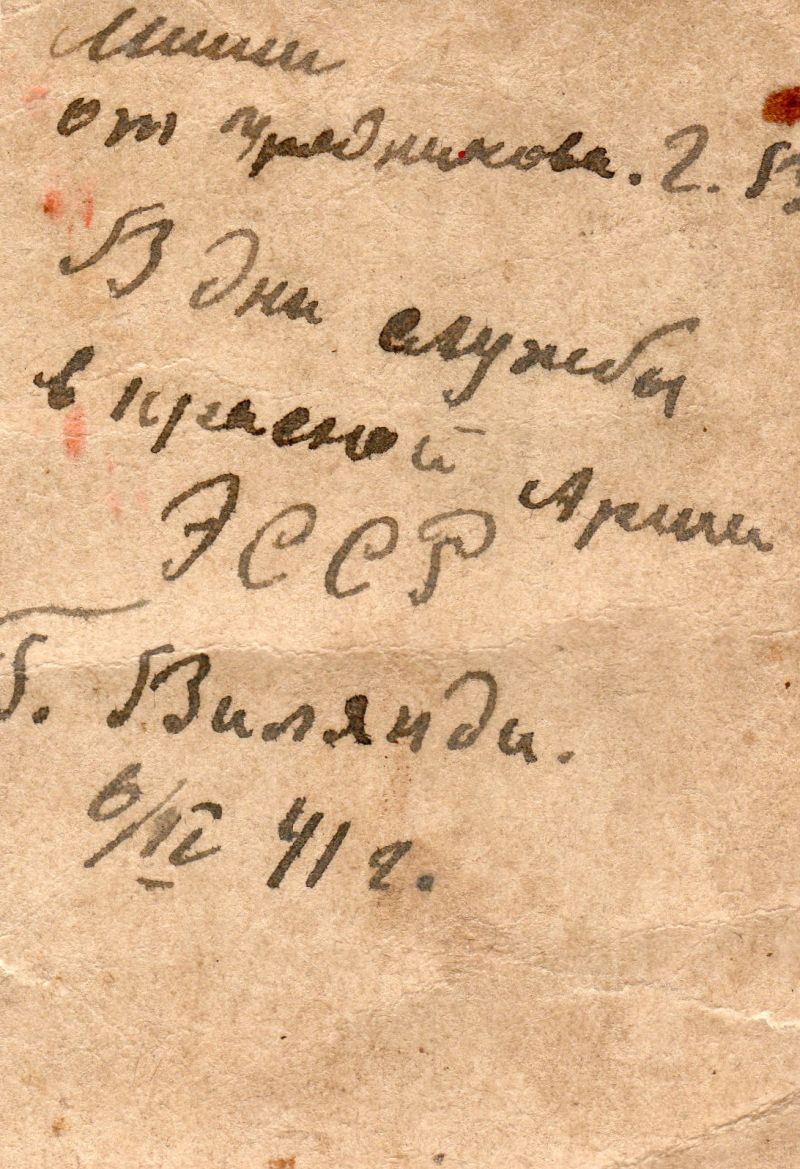 от Урядникова. Г. В
В дни службы
в красной Армии
ЭССР
Г. Вилянди.
6/IV 41 г.